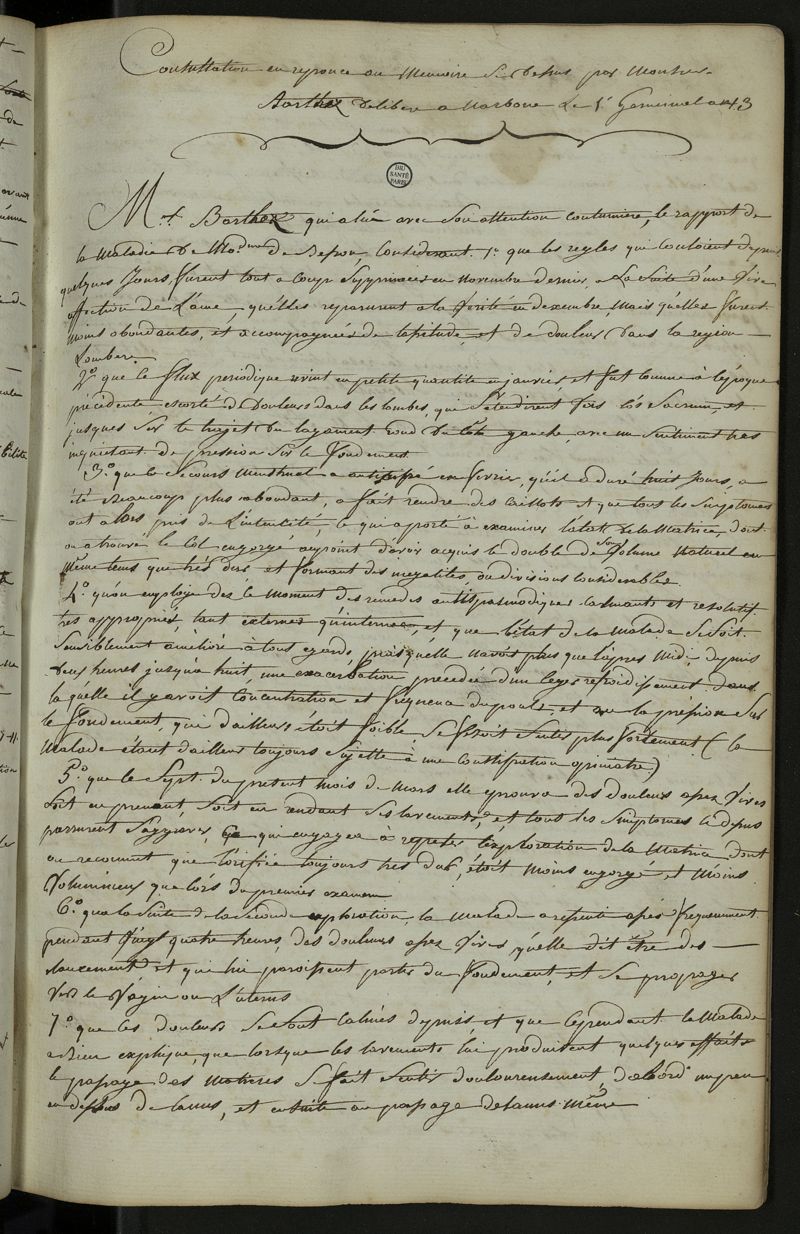 Consultation en reponce au Memoire Ci dessus par Monsieur
Barthez délibéré a Narbone Le 1r Germinal an 13
BIU
SANTÉ
PARIS
Mr. Barthez qui a lu avec son attention coutumiere, le rapport de
la Maladie de Made. de Besson, Considerant. 1o. que les regles qui Couloient depuis
quelques Jours, furent tout a Coup Supprimées en novembre dernier, a La Suite d'une Vive
affection de L'ame, qu'elles reparurent a la Verité en decembre, Mais qu'elles furent
Moins abondantes, et accompagnées de lassitude et de douleurs dans la region
Lombere.
2o. que le flux periodique vint en petite quantité en janvier et fut Comme à l'epoque
précédente escorté de Douleurs dans les lombes, qui S'etendirent Vers L'os Sacrum, et
jusques Sur le trajet du ligament rond du Côté gauche, avec un Sentiment très
inquietant de pression Sur le fondement
3o. que le Cours Menstruel a anticipé en fevrier, qu'il a duré huit Jours, a
été Beaucoup plus abondant, a fait rendre des Caillots et que tous les Simptomes
ont alors pris de L'intencité, ce qui a porté à examiner l'état de la Matrice, dont
on a trouvé le Col engorgé au point d'avoir acquis le double de Son Volume Naturel en
Même tems que très dur et formant des inegalités, ou divisions Considerables.
4o. qu'on employa dès le moment des remedes antispasmodiques calmants et resolutifs
très appropriés, tant externes qu'internes, et que L'état de la Malade Se Soit
Sensiblement amélioré à tous egards, puis qu'elle n'avoit plus que l'après Midi, depuis
deux heures jusqu'a huit, une exacerbation precedée d'un leger refroidissement dans
la quelle il y avoit Concentration et frequence du pouls, et ou la pression Sur
le fondement, qui d'ailleurs étoit foible, Se faisoit Sentir plus fortement (la
Malade étant d'ailleurs toujours Sujette à une Constipation opiniatre)
5o. que le Sept. du present mois de Mars elle eprouva des douleurs assez Vives
Soit en prenant, Soit en rendant Ses lavements, et tous les Simptomes Ci dessus
parurent S'aggraver, Ce qui engagea à repeter l'exploration de la Matrice dont
on reconnut que l'orifice toujours très dur, étoit Moins engorgé et Moins
Volumineux que lors du premier examen
6o. qu'a la Suite de la Seconde exploration, la Malade a resenti assés frequemment
pendant Vingt quatre heures, des douleurs assez Vives qu'elle dit être des
elancements et qui lui paroissent partir du fondement, et Se propager
vers le Vagin ou L'uterus
7o. que les douleurs Se Sont Calmées depuis, et que Cependant la Malade
a Bien expliqué, que lorsque les lavements lui produisent quelques effets
le passage des Matieres Se fait Sentir douloureusement, d'abord un peu
au dessus de l'anus, et ensuite au passage de l'anus Même